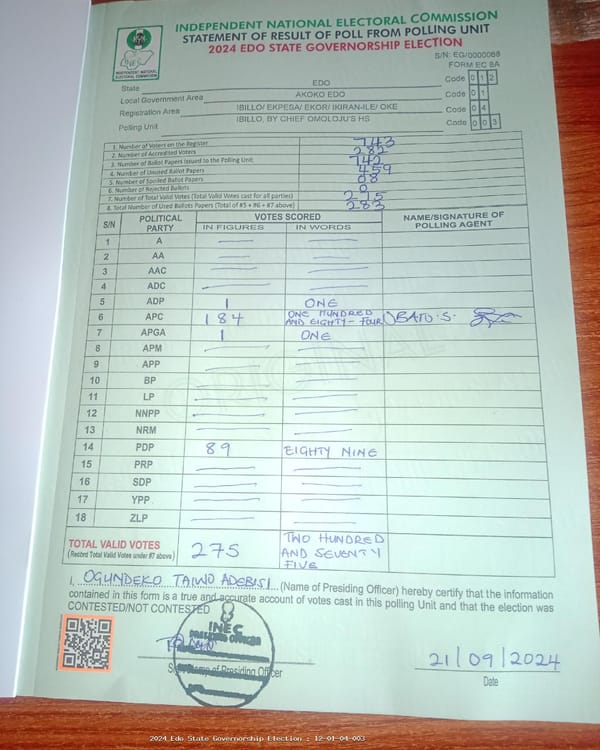 INDEPENDENT NATIONAL ELECTORAL COMMISSION
STATEMENT OF RESULT OF POLL FROM POLLING UNIT
2024 EDO STATE GOVERNORSHIP ELECTION
INDEPENDENT NATIONAL ELECTORAL COMMISSION
S/N: EG/0000088
FORM EC 8A
State EDO Code 0 1 2
Local Government Area AKOKO EDO Code 0 1
Registration Area IBILLO/ EKPESA/ EKOR/ IKIRAN-ILE/ OKE Code 0 4
Polling Unit IBILLO, BY CHIEF OMOLOJU'S HS Code 0 0 3
1. Number of Voters on the Register 743
2. Number of Accredited Voters 282
3. Number of Ballot Papers Issued to the Polling Unit 742
4. Number of Unused Ballot Papers 459
5. Number of Spoiled Ballot Papers 08
6. Number of Rejected Ballots 0
7. Number of Total Valid Votes (Total Valid Votes cast for all parties) 275
8. Total Number of Used Ballots Papers (Total of #5 + #6 + #7 above) 283
S/N POLITICAL PARTY VOTES SCORED NAME/SIGNATURE OF POLLING AGENT
IN FIGURES IN WORDS
1 A
2 AA
3 AAC
4 ADC
5 ADP 1 ONE
6 APC 184 ONE HUNDRED AND EIGHTY-FOUR OBATO.S.
7 APGA 1 ONE
8 APM
9 APP
10 BP
11 LP
12 NNPP
13 NRM
14 PDP 89 EIGHTY NINE
15 PRP
16 SDP
17 YPP
18 ZLP
TOTAL VALID VOTES 275 TWO HUNDRED AND SEVENTY FIVE
(Record Total Valid Votes under #7 above)
I, OGUNDEKO TAIWO ADEBISI (Name of Presiding Officer) hereby certify that the information
contained in this form is a true and accurate account of votes cast in this polling Unit and that the election was
CONTESTED/NOT CONTESTED
INEC
PRESIDING OFFICER
of Presiding Officer
21/09/2024
Date
2024 Edo State Governorship Election : 12-01-04-003